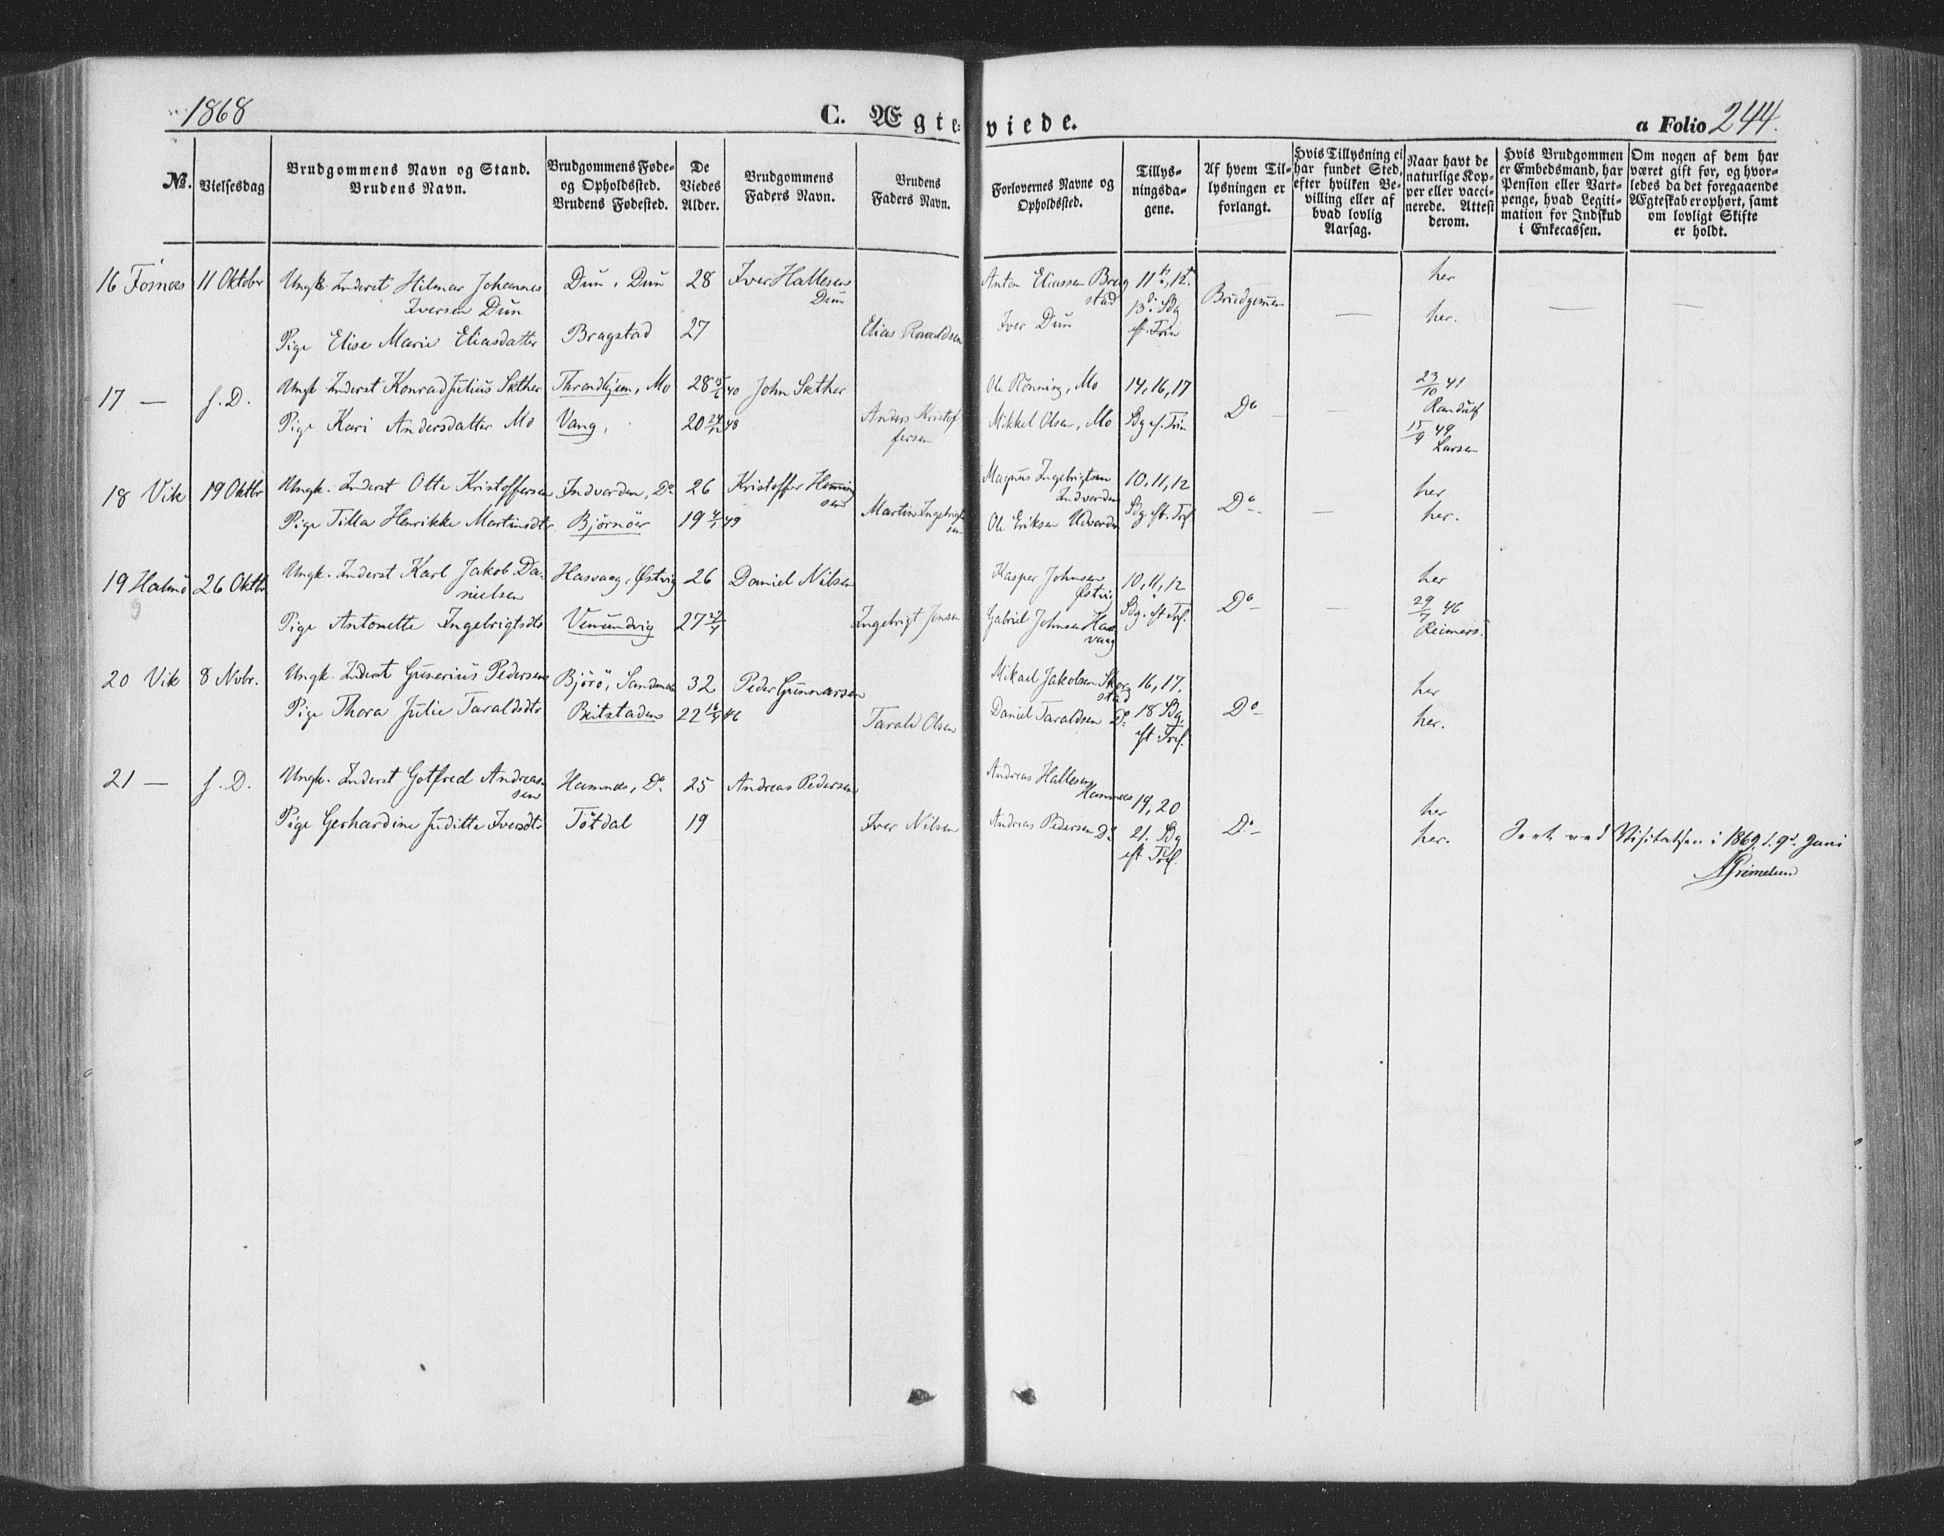 1868
C. Ægteviede.
a Folio 244.
№.
Vielsesdag
Brudgommens Navn og Stand.
Brudens Navn.
Brudgommens Føde-
og Opholdssted.
Brudens Fødested.
De
Viedes
Alder.
Brudgommens
Faders Navn.
Brudens
Faders Navn.
Forlovernes Navne og
Opholdssted.
Tillys-
ningsda-
gene.
Af hvem Til-
lysningen er
forlangt.
Hvis Tillysning ei
har fundet Sted,
efter hvilken Be-
villing eller af
hvad lovlig
Aarsag.
Naar havt de
naturlige Kop-
per eller vacci-
nerede. Attest
derom.
Hvis Brudgommen
er Embedsmand, har
Pension eller Vart-
penge, hvad Legiti-
mation for Indskud
i Enkecassen.
Om nogen af dem har
været gift før, og hvor-
ledes da det foregaaende
Ægteskab er ophørt, samt
om lovligt Skifte
er holdt.
16 Fosnæs 11 Oktobr Ungk. Inderst Hilmar Johannes Dun, Dun 28 Iver Hallesen Anton Eliassen Brag 11te, 12te her
Iversen Dun Dun stad 13de Sdg Brudgommen — her. — —
Pige Elise Marie Eliasdatter Bragstad 27 Elias Iver Dun eft. Trin
17 — s. D. Ungk. Inderst Konrad Julius Sæther Throndhjem, Mo 28 15/6 40 John Sæther Ole Rønning, Mo 14, 16, 17 23/10 41
Pige Kari Andersdatter Mo Vang, 20 24/12 48 Anders Kristof Mikkel Olsen, Mo Sdg ef. Trin Do — Randulf
fersen 15/9 49 Larsen
18 Vik 19 Oktbr Ungk. Inderst Otte Kristoffersen Indvorden, Do 26 Kristoffer Henning Magnus Ingebrigtsen 10, 11, 12 her
sen Indvorden Do —
Pige Tilla Henrikke Martinsdtr Bjørnör 19 4/1 49 Martin Ingebrigt Ole Eriksen Udvorden Sdg. eft. Tref. her.
sen
19 Halmö 26 Oktbr Ungk. Inderst Karl Jakob Da- Hasvaag, Østvig 26 Daniel Nilsen Kasper Johnsen 10, 11, 12 her
nielsen Østvig Do — 29/7 46
Pige Antonette Ingebrigtsdtr Vemundvig 27 Ingebrigt Jensen Gabriel Johnsen Has Sdg. eft. Tref. Reimers.
vaag
20 Vik 8 Novbr. Ungk. Inderst Gunerius Pedersen Björö, 32 Peder Gunnarsen Mikael Jakobsen 16, 17. her
stad
Pige Thora Julie Taraldsdtr Beitstaden 22 46 Tarald Olsen Daniel Taraldsen Do 18 Sdg. Do — her.
eft. Tref.
21 — s. D. Ungk. Inderst Gotfred Andreas- Hamnes, Do 25 Andreas Pedersen Andreas Hallesen
sen Hamnes 19, 20 her
Pige Gerhardine Juditte Iversdtr Tötdal 19 Iver Nilsen Andreas Pedersen Do 21. Sdg Do — her. Seet ved Visitatsen i 1869 d. 9de Juni
eft Tref. Grimelund